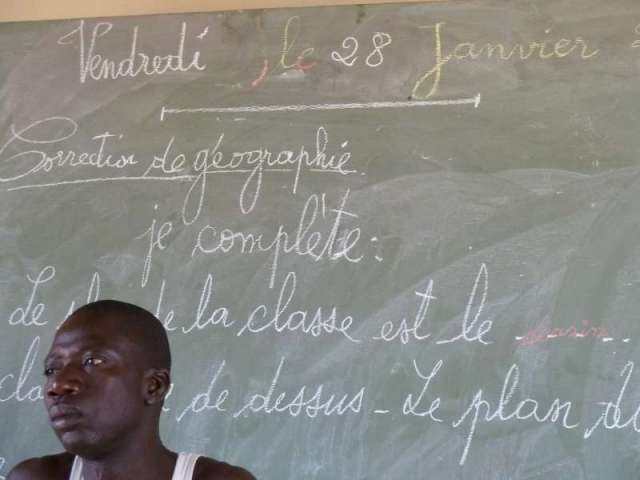 Vendredi, le 28 Janvier
Correction de géographie
je complète :
Le de la classe est le dessin
de dessus - Le plan